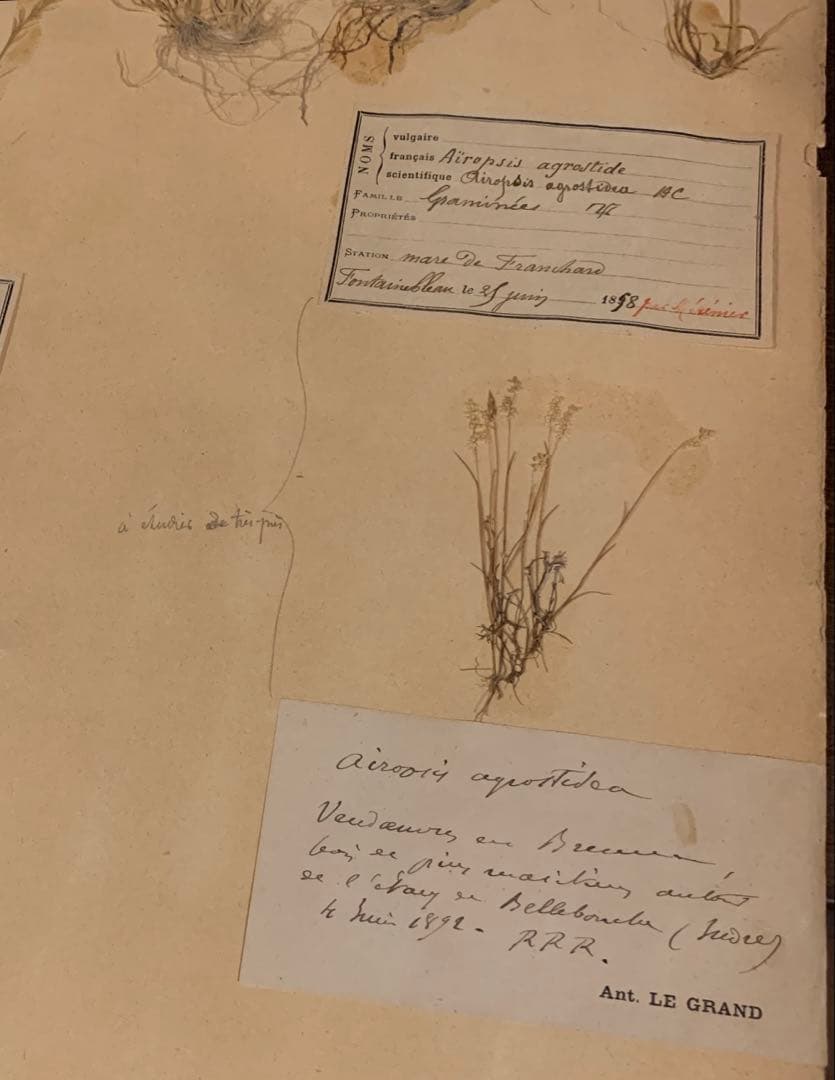 NOMS
vulgaire
français Aïropsis agrostide
scientifique Airopsis agrostidea DC
FAMILLE Graminées
PROPRIÉTÉS
STATION mare de Franchard
Fontainebleau le 25 juin 1898 par
à étudier de très près
Airopsis agrostidea
Vendœuvres en Brenne,
bois de pins maritimes autour
de l'étang de Bellebouche (Indre)
4 Juin 1892 - RRR.
Ant. LE GRAND